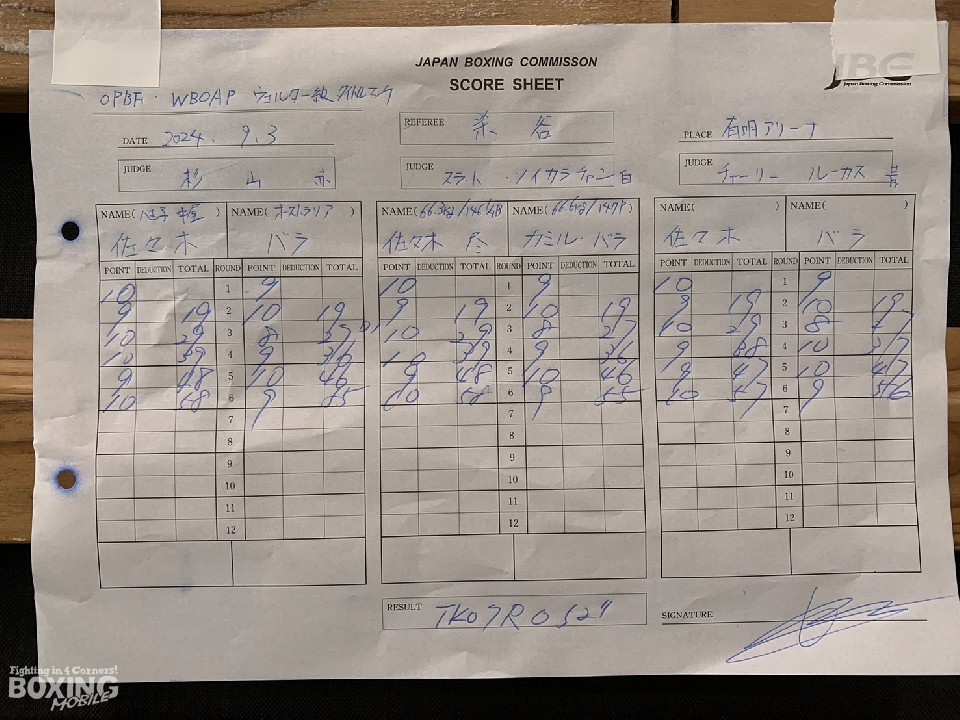 JAPAN BOXING COMMISSON
SCORE SHEET
JBC
Japan Boxing Commission
OPBF・WBOAP ウェルター級 タイトルマッチ
DATE 2024. 9. 3
REFEREE 染谷
PLACE 有明アリーナ
JUDGE 杉山 赤
JUDGE スラット・ソイカラチャン 白
JUDGE チャーリー ルーカス 青
NAME(八王子中屋) NAME(オーストラリア) NAME(66.3kg/146 1/4P) NAME(66.6kg/147P) NAME( ) NAME( )
佐々木 バラ 佐々木 尽 カミル・バラ 佐々木 バラ
POINT DEDUCTION TOTAL ROUND POINT DEDUCTION TOTAL POINT DEDUCTION TOTAL ROUND POINT DEDUCTION TOTAL POINT DEDUCTION TOTAL ROUND POINT DEDUCTION TOTAL
10 1 9 10 1 9 10 1 9
9 19 2 10 19 9 19 2 10 19 9 19 2 10 19
10 29 3 8 10 29 3 8 27 10 29 3 8 27
10 39 4 9 36 10 39 4 9 36 9 38 4 10 37
9 48 5 10 46 9 48 5 10 46 47 5 10 47
10 58 6 9 55 10 58 6 9 55 10 57 6 9 56
7 7 7
8 8 8
9 9 9
10 10 10
11 11 11
12 12 12
RESULT TKO 7R 0'52"
SIGNATURE
Fighting in 4 Corners!
BOXING
MOBILE